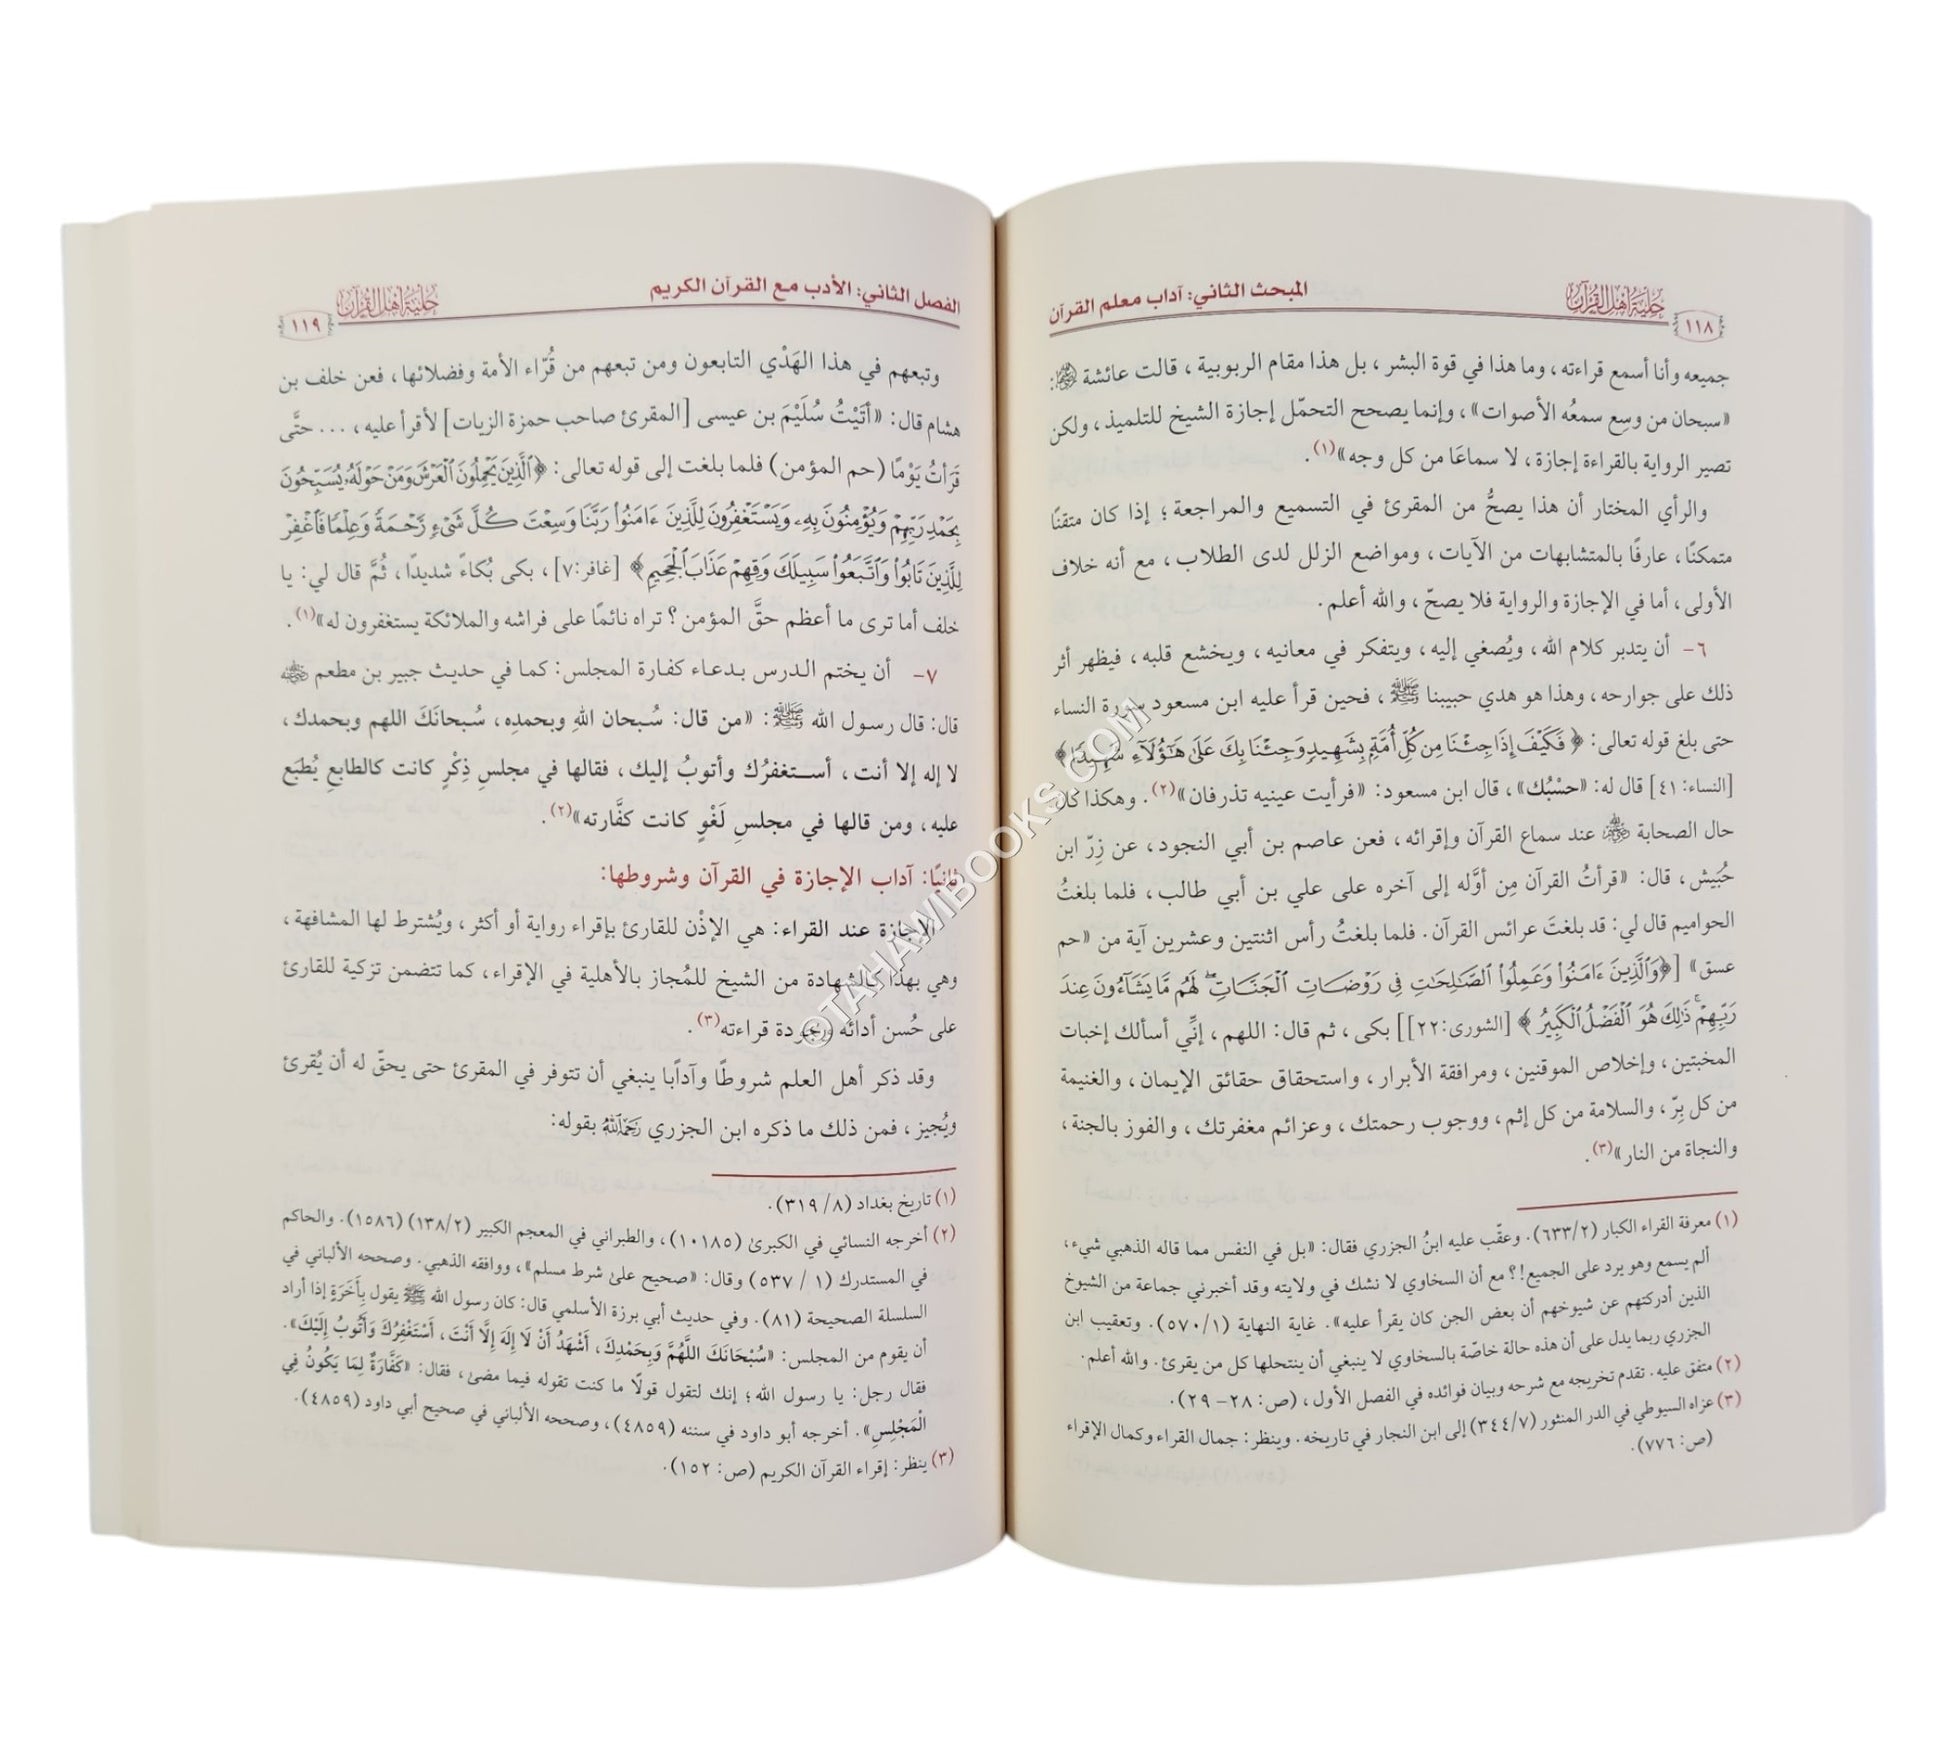 حلية أهل القرآن
المبحث الثاني: آداب معلم القرآن
١١٨
جميعه وأنا أسمع قراءته، وما هذا في قوة البشر، بل هذا مقام الربوبية، قالت عائشة رضي الله عنها:
«سبحان من وسِع سمعُه الأصوات»، وإنما يصحح التحمّل إجازة الشيخ للتلميذ، ولكن
تصير الرواية بالقراءة إجازة، لا سماعًا من كل وجه»(١).
والرأي المختار أن هذا يصحُّ من المقرئ في التسميع والمراجعة؛ إذا كان متقنًا
متمكنًا، عارفًا بالمتشابهات من الآيات، ومواضع الزلل لدى الطلاب، مع أنه خلاف
الأولى، أما في الإجازة والرواية فلا يصحّ، والله أعلم.
٦- أن يتدبر كلام الله، ويُصغي إليه، ويتفكر في معانيه، ويخشع قلبه، فيظهر أثر
ذلك على جوارحه، وهذا هو هدي حبيبنا ﷺ، فحين قرأ عليه ابن مسعود سورة النساء
حتى بلغ قوله تعالى: ﴿فَكَيْفَ إِذَا جِئْنَا مِن كُلِّ أُمَّةٍ بِشَهِيدٍ وَجِئْنَا بِكَ عَلَىٰ هَٰٓؤُلَآءِ شَهِيدًا﴾
[النساء: ٤١] قال له: «حسْبُك»، قال ابن مسعود: «فرأيت عينيه تذرفان»(٢). وهكذا كان
حال الصحابة رضي الله عنهم عند سماع القرآن وإقرائه، فعن عاصم بن أبي النجود، عن زِرّ ابن
حُبَيش، قال: «قرأتُ القرآن مِن أوَّله إلى آخره على علي بن أبي طالب، فلما بلغتُ
الحواميم قال لي: قد بلغتَ عرائس القرآن. فلما بلغتُ رأس اثنتين وعشرين آية من «حم
عسق» [﴿وَٱلَّذِينَ ءَامَنُوا۟ وَعَمِلُوا۟ ٱلصَّـٰلِحَـٰتِ فِى رَوْضَاتِ ٱلْجَنَّاتِ ۖ لَهُم مَّا يَشَآءُونَ عِندَ
رَبِّهِمْ ۚ ذَٰلِكَ هُوَ ٱلْفَضْلُ ٱلْكَبِيرُ﴾ [الشورى: ٢٢]] بكى، ثم قال: اللهم، إنّي أسألك إخبات
المخبتين، وإخلاص الموقنين، ومرافقة الأبرار، واستحقاق حقائق الإيمان، والغنيمة
من كل بِرّ، والسلامة من كل إثم، ووجوب رحمتك، وعزائم مغفرتك، والفوز بالجنة،
والنجاة من النار»(٣).
(١) معرفة القراء الكبار (٦٣٣/٢). وعقّب عليه ابنُ الجزري فقال: «بل في النفس مما قاله الذهبي شيء،
ألم يسمع وهو يرد على الجميع!؟ مع أن السخاوي لا نشك في ولايته وقد أخبرني جماعة من الشيوخ
الذين أدركتهم عن شيوخهم أن بعض الجن كان يقرأ عليه». غاية النهاية (٥٧٠/١). وتعقيب ابن
الجزري ربما يدل على أن هذه حالة خاصّة بالسخاوي لا ينبغي أن ينتحلها كل من يقرئ. والله أعلم.
(٢) متفق عليه. تقدم تخريجه مع شرحه وبيان فوائده في الفصل الأول، (ص: ٢٨- ٢٩).
(٣) عزاه السيوطي في الدر المنثور (٣٤٤/٧) إلى ابن النجار في تاريخه. وينظر: جمال القراء وكمال الإقراء
(ص: ٧٧٦).
الفصل الثاني: الأدب مع القرآن الكريم
حلية أهل القرآن
١١٩
وتبعهم في هذا الهَدْي التابعون ومن تبعهم من قُرّاء الأمة وفضلائها، فعن خلف بن
هشام قال: «أتَيْتُ سُلَيْمَ بن عيسى [المقرئ صاحب حمزة الزيات] لأقرأ عليه، ... حتَّى
قَرَأتُ يَوْمًا (حم المؤمن) فلما بلغت إلى قوله تعالى: ﴿ٱلَّذِينَ يَحْمِلُونَ ٱلْعَرْشَ وَمَنْ حَوْلَهُۥ يُسَبِّحُونَ
بِحَمْدِ رَبِّهِمْ وَيُؤْمِنُونَ بِهِۦ وَيَسْتَغْفِرُونَ لِلَّذِينَ ءَامَنُوا۟ رَبَّنَا وَسِعْتَ كُلَّ شَىْءٍ رَّحْمَةً وَعِلْمًا فَٱغْفِرْ
لِلَّذِينَ تَابُوا۟ وَٱتَّبَعُوا۟ سَبِيلَكَ وَقِهِمْ عَذَابَ ٱلْجَحِيمِ﴾ [غافر: ٧]، بكى بُكاءً شديدًا، ثُمَّ قال لي: يا
خلف أما ترى ما أعظم حقَّ المؤمن؟ تراه نائمًا على فراشه والملائكة يستغفرون له»(١).
٧- أن يختم الدرس بدعاء كفارة المجلس: كما في حديث جبير بن مطعم رضي الله عنه
قال: قال رسول الله ﷺ: «من قال: سُبحان اللهِ وبحمدِه، سُبحانَكَ اللهم وبحمدك،
لا إله إلا أنت، أستغفرُك وأتوبُ إليك، فقالها في مجلسِ ذِكْرٍ كانت كالطابعِ يُطبَع
عليه، ومن قالها في مجلسِ لَغْوٍ كانت كفَّارته»(٢).
ثانيًا: آداب الإجازة في القرآن وشروطها:
الإجازة عند القراء: هي الإذْن للقارئ بإقراء رواية أو أكثر، ويُشترط لها المشافهة،
وهي بهذا كالشهادة من الشيخ للمُجاز بالأهلية في الإقراء، كما تتضمن تزكية للقارئ
على حُسن أدائه وجودة قراءته(٣).
وقد ذكر أهل العلم شروطًا وآدابًا ينبغي أن تتوفر في المقرئ حتى يحقّ له أن يُقرئ
ويُجيز، فمن ذلك ما ذكره ابن الجزري رحمه الله بقوله:
(١) تاريخ بغداد (٨/ ٣١٩).
(٢) أخرجه النسائي في الكبرى (١٠١٨٥)، والطبراني في المعجم الكبير (١٣٨/٢) (١٥٨٦). والحاكم
في المستدرك (١ / ٥٣٧) وقال: «صحيح على شرط مسلم»، ووافقه الذهبي. وصححه الألباني في
السلسلة الصحيحة (٨١). وفي حديث أبي برزة الأسلمي قال: كان رسول الله ﷺ يقول بِأَخَرَةٍ إذا أراد
أن يقوم من المجلس: «سُبْحَانَكَ اللَّهُمَّ وَبِحَمْدِكَ، أَشْهَدُ أَنْ لَا إِلَهَ إِلَّا أَنْتَ، أَسْتَغْفِرُكَ وَأَتُوبُ إِلَيْكَ».
فقال رجل: يا رسول الله؛ إنك لتقول قولًا ما كنت تقوله فيما مضى، فقال: «كَفَّارَةٌ لِمَا يَكُونُ فِي
الْمَجْلِسِ». أخرجه أبو داود في سننه (٤٨٥٩)، وصححه الألباني في صحيح أبي داود (٤٨٥٩).
(٣) ينظر: إقراء القرآن الكريم (ص: ١٥٢).
©TAHAWIBOOKS.COM